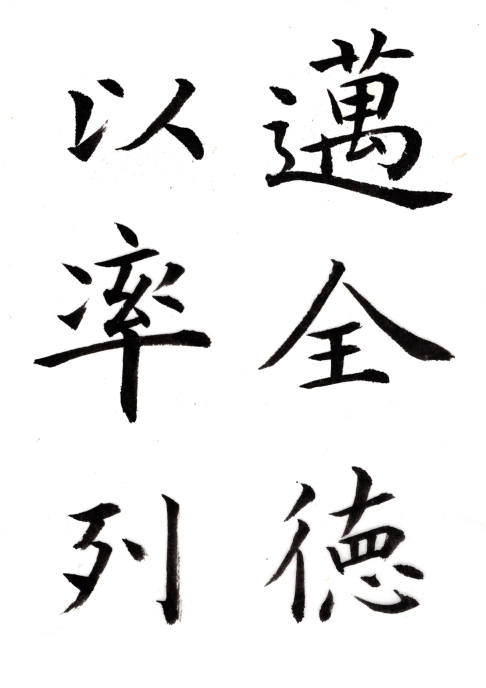 邁全徳
以率列